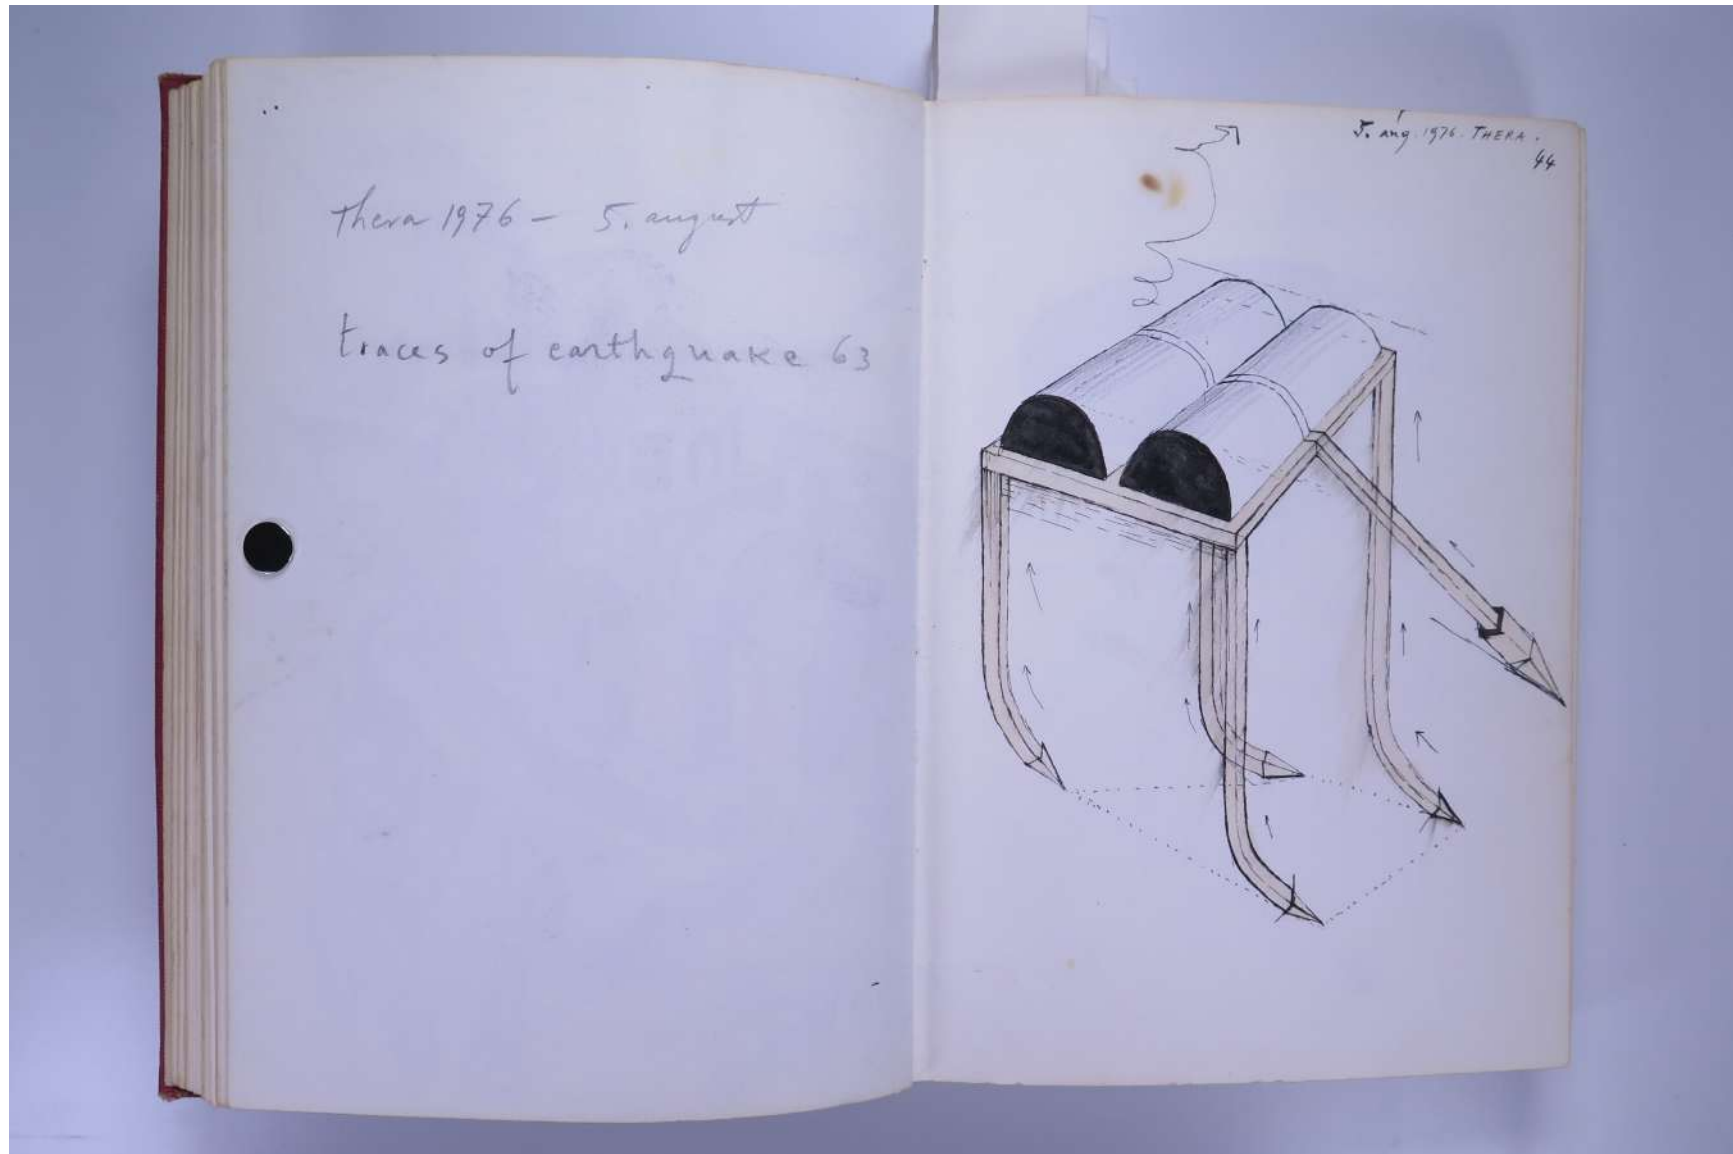 thera 1976 – 5. august
traces of earthquake 63
5. aug. 1976. THERA.
44